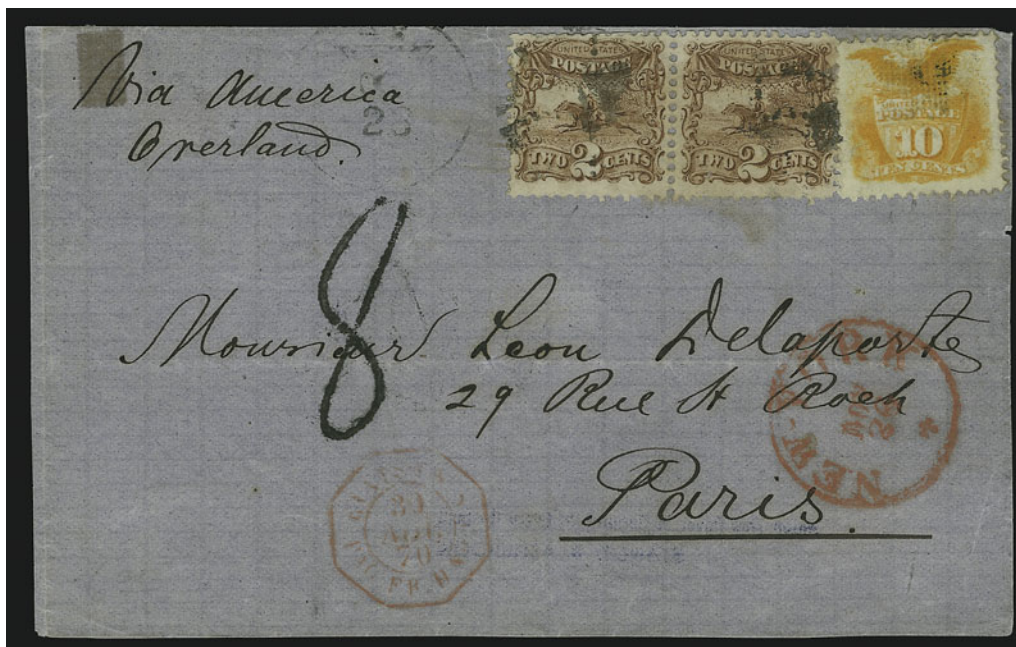 Via America
Overland.
23
UNITED STATES
POSTAGE
TWO 2 CENTS
UNITED STATES
POSTAGE
TWO 2 CENTS
UNITED STATES
POSTAGE
10
TEN CENTS
8
Monsieur Leon Delaporte
29 Rue St Roch
Paris.
NEW YORK
30
AOUT
70